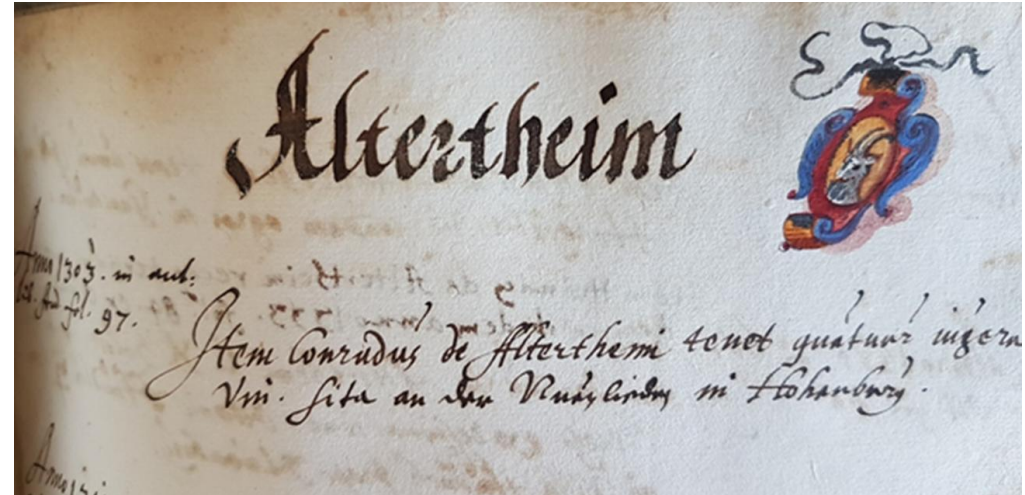 Altertheim
Anno 1303. in ant:
fol. 97.
Item Conradus de Altertheim tenet quatuor iugera
Vin. sita an der in Hohenburg.
Anno